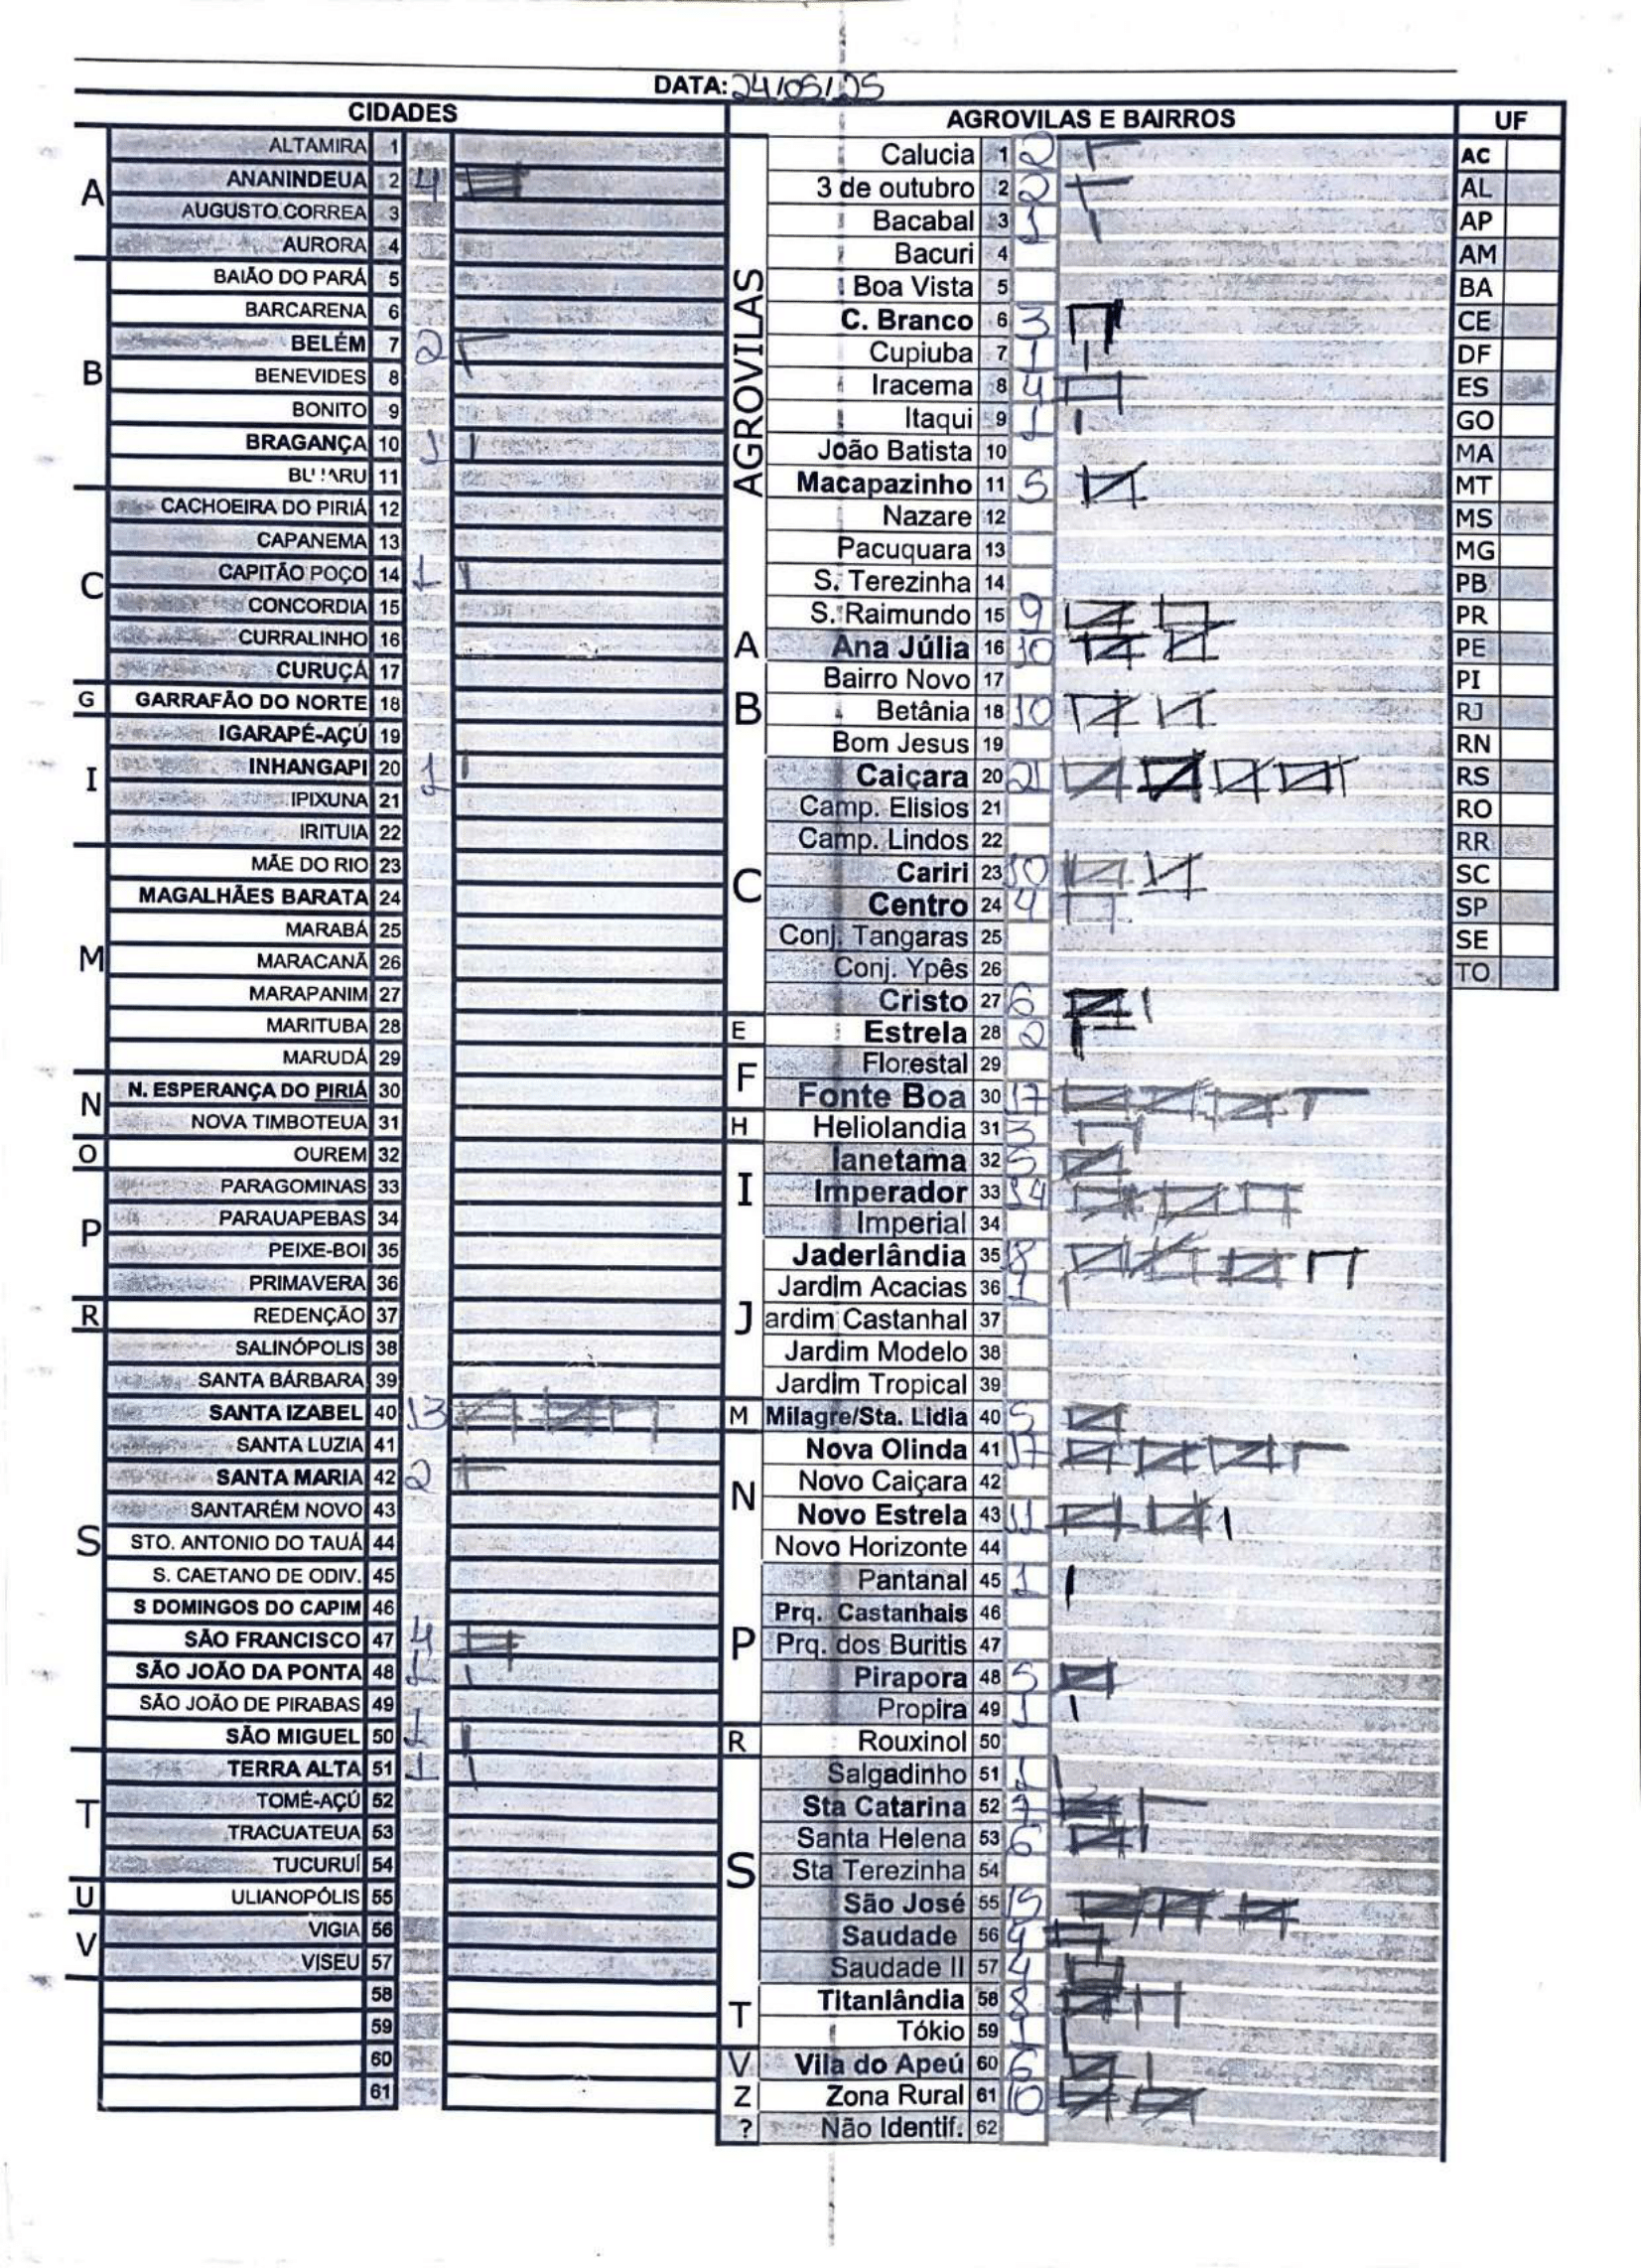 DATA: 24/05/25
CIDADES
A
ALTAMIRA 1
ANANINDEUA 2 4
AUGUSTO CORREA 3
AURORA 4
B
BAIÃO DO PARÁ 5
BARCARENA 6
BELÉM 7 2
BENEVIDES 8
BONITO 9
BRAGANÇA 10 1
ARU 11
C
CACHOEIRA DO PIRIÁ 12
CAPANEMA 13
CAPITÃO POÇO 14 1
CONCORDIA 15
CURRALINHO 16
CURUÇÁ 17
G
GARRAFÃO DO NORTE 18
I
IGARAPÉ-AÇÚ 19
INHANGAPI 20 1
IPIXUNA 21
IRITUIA 22
M
MÃE DO RIO 23
MAGALHÃES BARATA 24
MARABÁ 25
MARACANÃ 26
MARAPANIM 27
MARITUBA 28
MARUDÁ 29
N
N. ESPERANÇA DO PIRIÁ 30
NOVA TIMBOTEUA 31
O
OUREM 32
P
PARAGOMINAS 33
PARAUAPEBAS 34
PEIXE-BOI 35
PRIMAVERA 36
R
REDENÇÃO 37
S
SALINÓPOLIS 38
SANTA BÁRBARA 39
SANTA IZABEL 40 13
SANTA LUZIA 41
SANTA MARIA 42 2
SANTARÉM NOVO 43
STO. ANTONIO DO TAUÁ 44
S. CAETANO DE ODIV. 45
S DOMINGOS DO CAPIM 46
SÃO FRANCISCO 47 4
SÃO JOÃO DA PONTA 48 1
SÃO JOÃO DE PIRABAS 49
SÃO MIGUEL 50 1
T
TERRA ALTA 51 1
TOMÉ-AÇÚ 52
TRACUATEUA 53
TUCURUÍ 54
U
ULIANOPÓLIS 55
V
VIGIA 56
VISEU 57
58
59
60
61
AGROVILAS E BAIRROS
AGROVILAS
Calucia 1 2
3 de outubro 2 2
Bacabal 3 1
Bacuri 4
Boa Vista 5
C. Branco 6 3
Cupiuba 7 1
Iracema 8 4
Itaqui 9 1
João Batista 10
Macapazinho 11 5
Nazare 12
Pacuquara 13
S. Terezinha 14
S. Raimundo 15 9
A
Ana Júlia 16 10
Bairro Novo 17
B
Betânia 18 10
Bom Jesus 19
C
Caiçara 20 21
Camp. Elisios 21
Camp. Lindos 22
Cariri 23 10
Centro 24 4
Conj. Tangaras 25
Conj. Ypês 26
Cristo 27 6
E
Estrela 28 2
F
Florestal 29
Fonte Boa 30 17
H
Heliolandia 31 3
I
Ianetama 32 5
Imperador 33 14
Imperial 34
J
Jaderlândia 35 18
Jardim Acacias 36 1
ardim Castanhal 37
Jardim Modelo 38
Jardim Tropical 39
M
Milagre/Sta. Lidia 40 5
N
Nova Olinda 41 17
Novo Caiçara 42
Novo Estrela 43 11
Novo Horizonte 44
P
Pantanal 45 1
Prq. Castanhais 46
Prq. dos Buritis 47
Pirapora 48 5
Propira 49 1
R
Rouxinol 50
S
Salgadinho 51 1
Sta Catarina 52 7
Santa Helena 53 6
Sta Terezinha 54
São José 55 15
Saudade 56 4
Saudade II 57 4
T
Titanlândia 58 8
Tókio 59 1
V
Vila do Apeú 60 6
Z
Zona Rural 61 10
?
Não Identif. 62
UF
AC
AL
AP
AM
BA
CE
DF
ES
GO
MA
MT
MS
MG
PB
PR
PE
PI
RJ
RN
RS
RO
RR
SC
SP
SE
TO